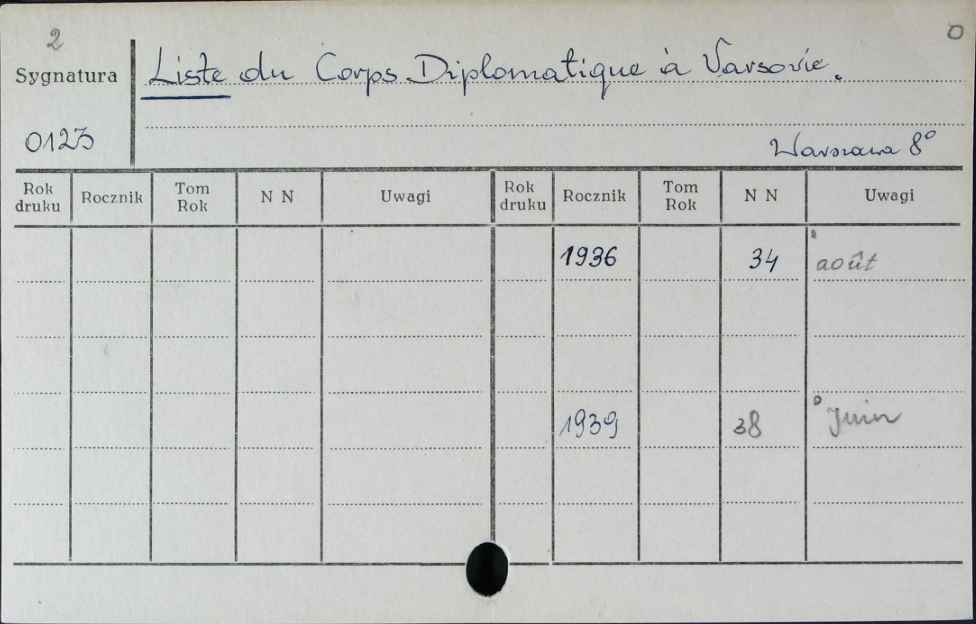 2
0
Sygnatura
Liste du Corps Diplomatique à Varsovie.
0123
Warszawa 8°
Rok druku Rocznik Tom Rok N N Uwagi Rok druku Rocznik Tom Rok N N Uwagi
1936 34 août
1939 38 Juin